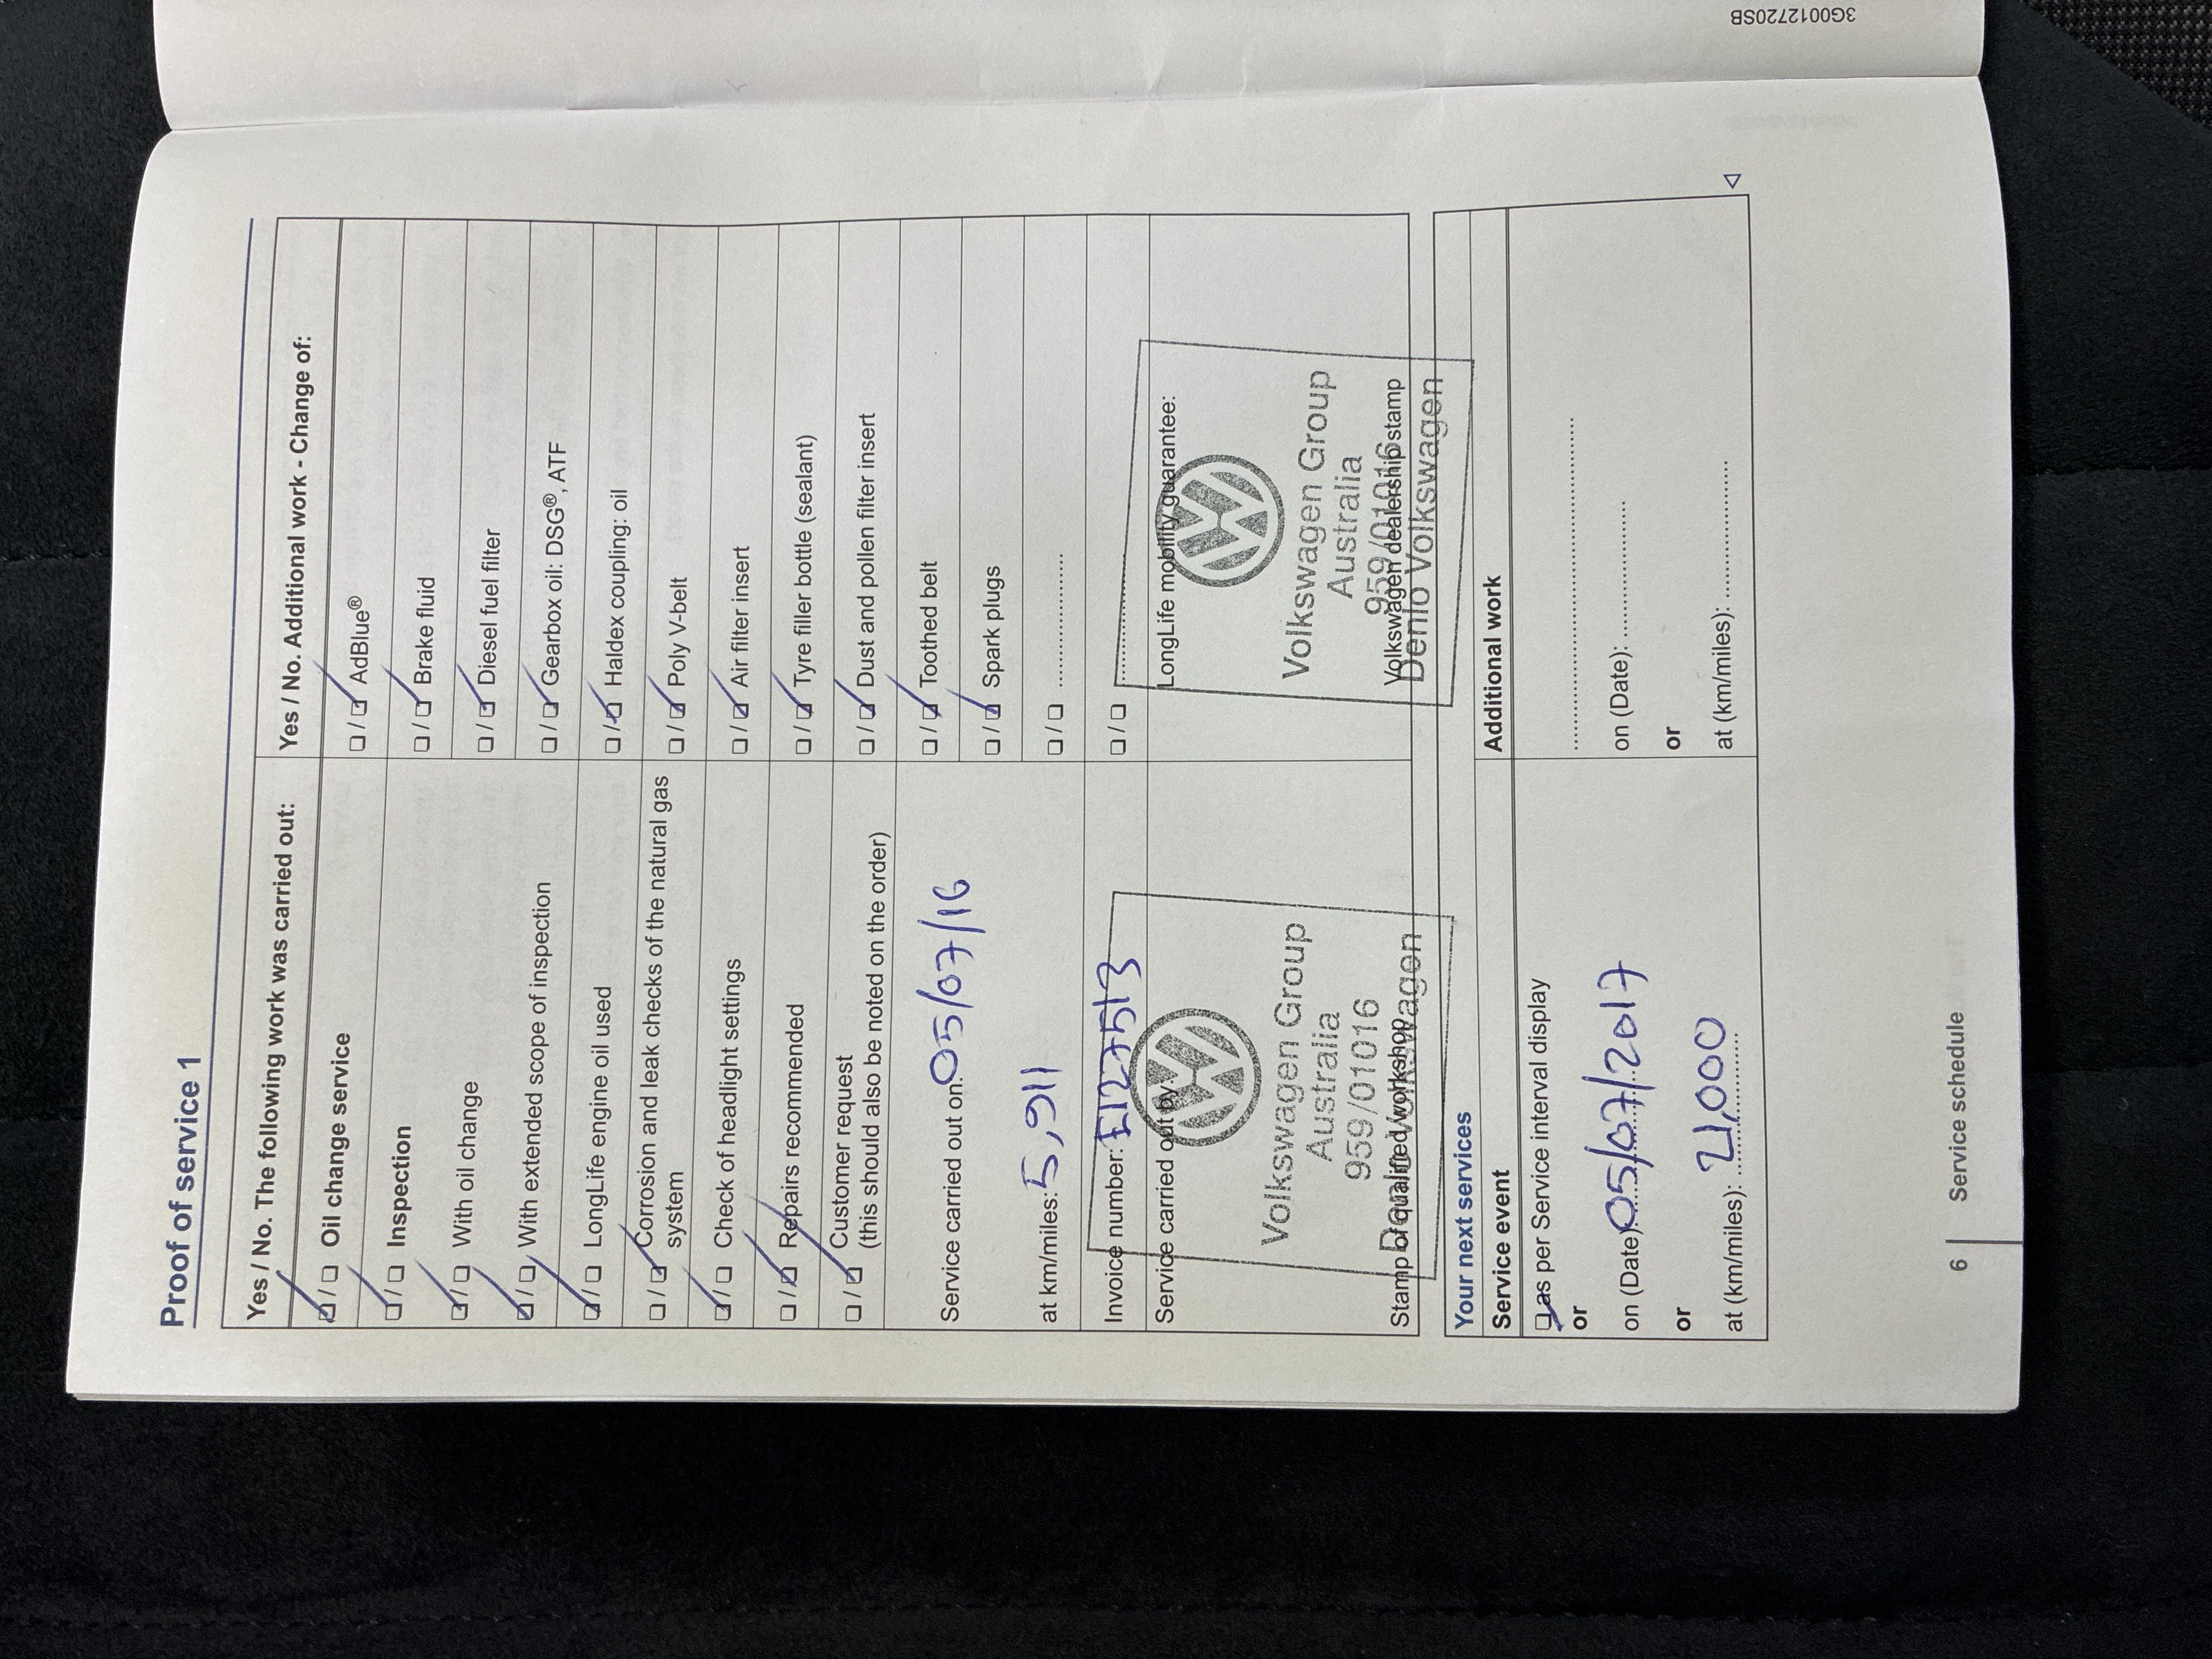 Proof of service 1
Yes / No. The following work was carried out:
☑ / ☐ Oil change service
☑ / ☐ Inspection
☑ / ☐ With oil change
☑ / ☐ With extended scope of inspection
☑ / ☐ LongLife engine oil used
☐ / ☑ Corrosion and leak checks of the natural gas
system
☑ / ☐ Check of headlight settings
☐ / ☑ Repairs recommended
☐ / ☑ Customer request
(this should also be noted on the order)
Service carried out on: 05/07/16
at km/miles: 5,911
Invoice number: E1227513
Service carried out by:
Volkswagen Group
Australia
959/01016
Denlo Volkswagen
Stamp of qualified workshop
Yes / No. Additional work - Change of:
☐ / ☑ AdBlue®
☐ / ☑ Brake fluid
☐ / ☑ Diesel fuel filter
☐ / ☑ Gearbox oil: DSG®, ATF
☐ / ☑ Haldex coupling: oil
☐ / ☑ Poly V-belt
☐ / ☑ Air filter insert
☐ / ☑ Tyre filler bottle (sealant)
☐ / ☑ Dust and pollen filter insert
☐ / ☑ Toothed belt
☐ / ☑ Spark plugs
☐ / ☐ ....................
☐ / ☐ ....................
LongLife mobility guarantee:
Volkswagen Group
Australia
959/01016
Volkswagen dealership stamp
Denlo Volkswagen
Your next services
Service event
☑ as per Service interval display
or
on (Date) 05/07/2017
or
at (km/miles): 21,000
Additional work
........................................
on (Date): ....................
or
at (km/miles): ....................
6 | Service schedule
3G0012720SB